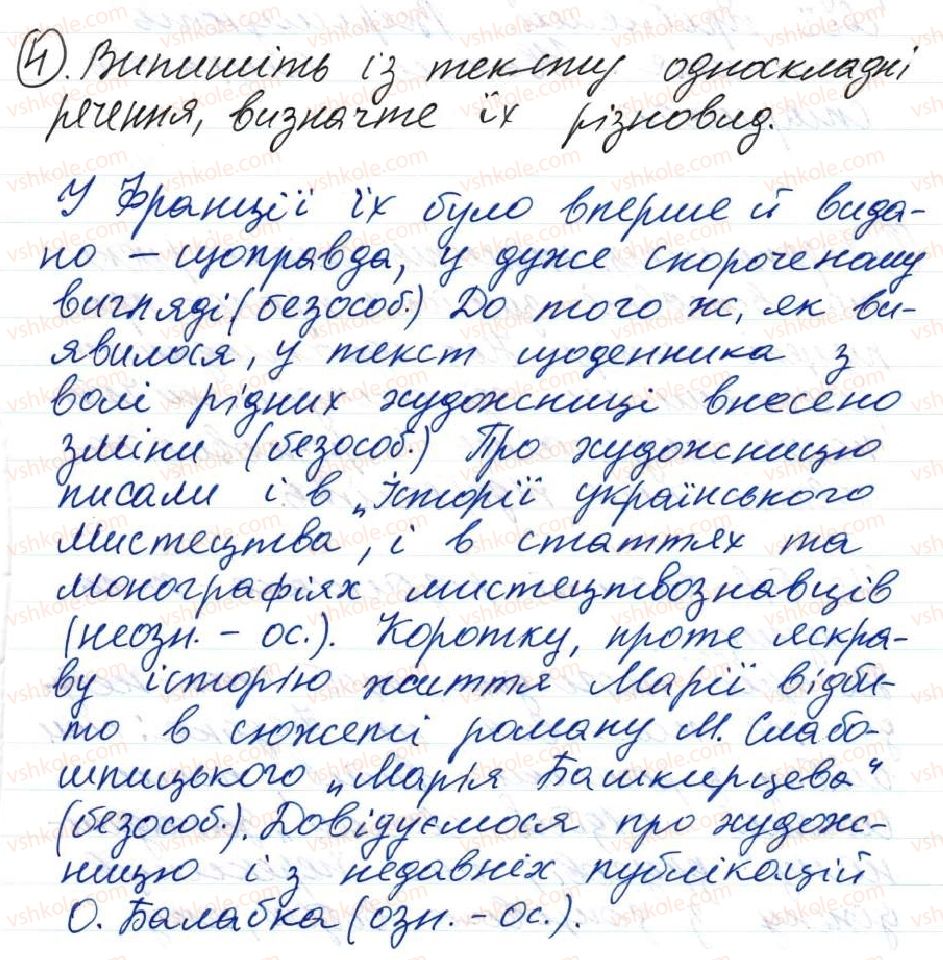 4. Випишіть із тексту односкладні
речення, визначте їх різновид.
У Франції їх було вперше й вида-
но – щоправда, у дуже скороченому
вигляді (безособ.) До того ж, як ви-
явилося, у текст щоденника з
волі рідних художниці внесено
зміни (безособ.) Про художницю
писали і в „Історії українського
мистецтва, і в статтях та
монографіях мистецтвознавців
(неозн. - ос.). Коротку, проте яскра-
ву історію життя Марії відби-
то в сюжеті роману М. Слабо-
шпицького „Марія Башкирцева"
(безособ.). Довідуємося про худож-
ницю і з недавніх публікацій
О. Балабка (озн. - ос.).